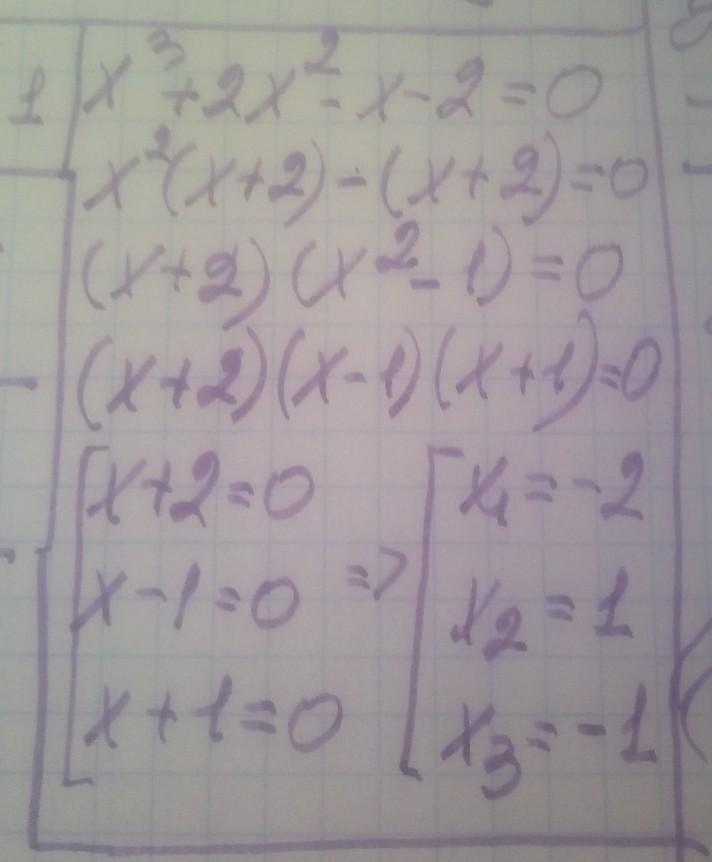 1 x³+2x²-x-2=0
x²(x+2)-(x+2)=0
(x+2)(x²-1)=0
(x+2)(x-1)(x+1)=0
[x+2=0
x-1=0
x+1=0
=>
[x₁=-2
x₂=1
x₃=-1